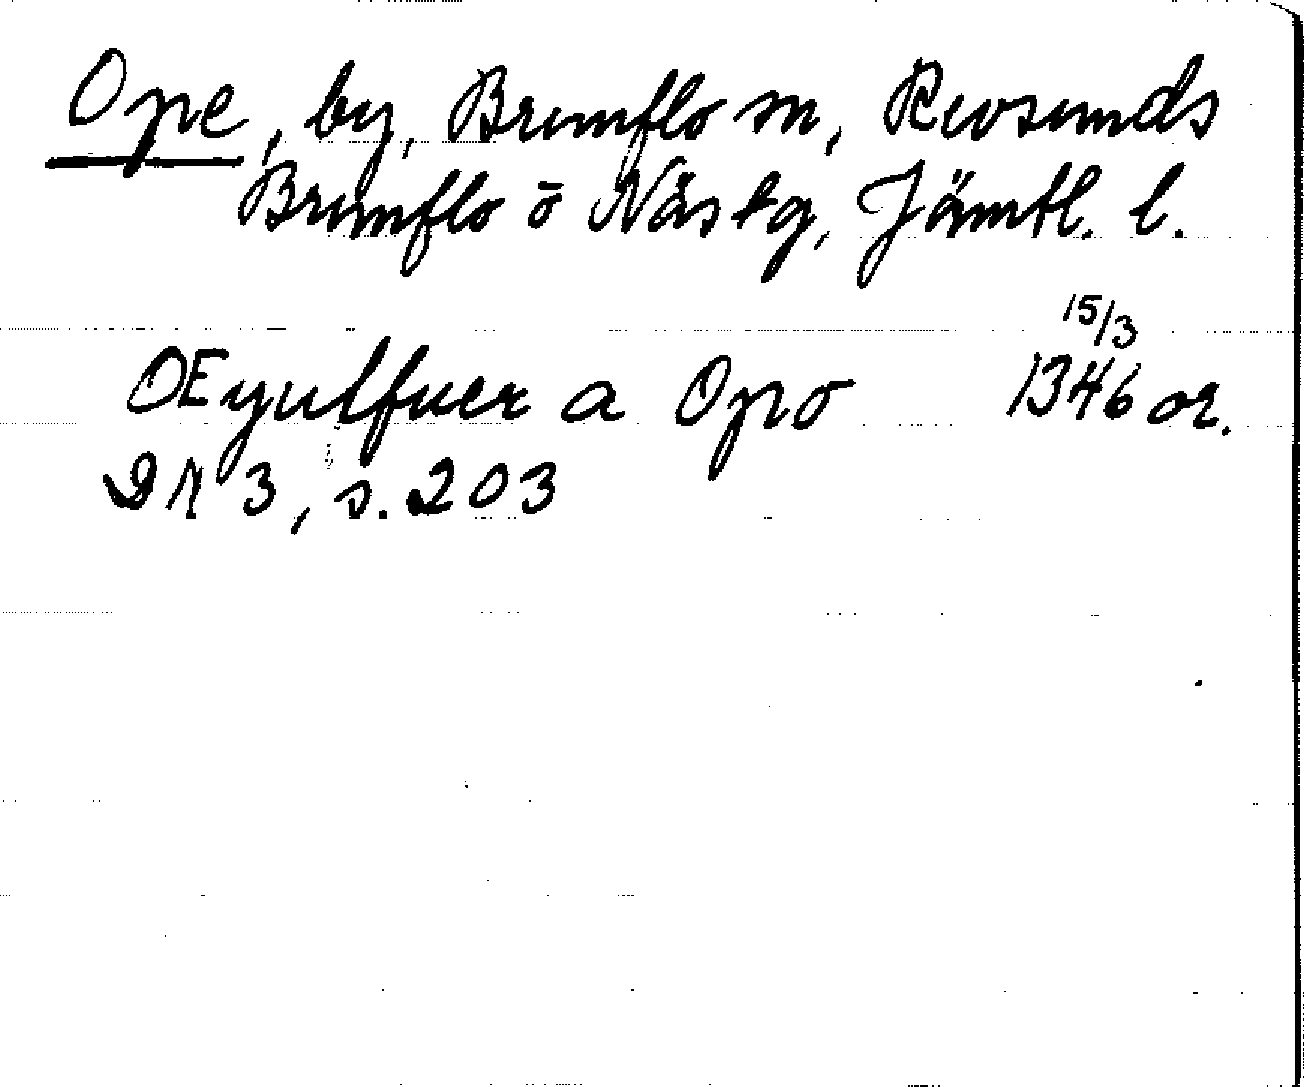 Ope, by, Brunflo sn, Revsunds
Brunflo o Näs tg, Jämtl. l.
15/3
OEyulfuer a Opo 1346 or.
DN 3, s. 203